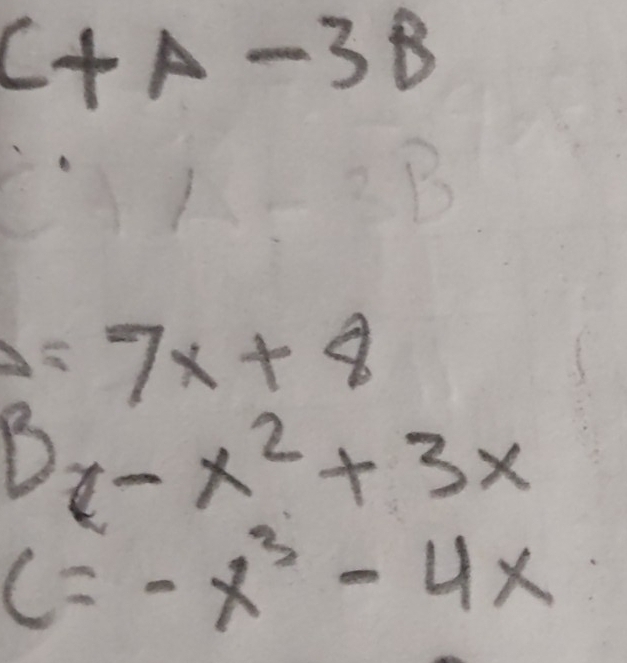 C + A - 3B
C A - 3B
A = 7x + 8
B = - x² + 3x
C = - x³ - 4x